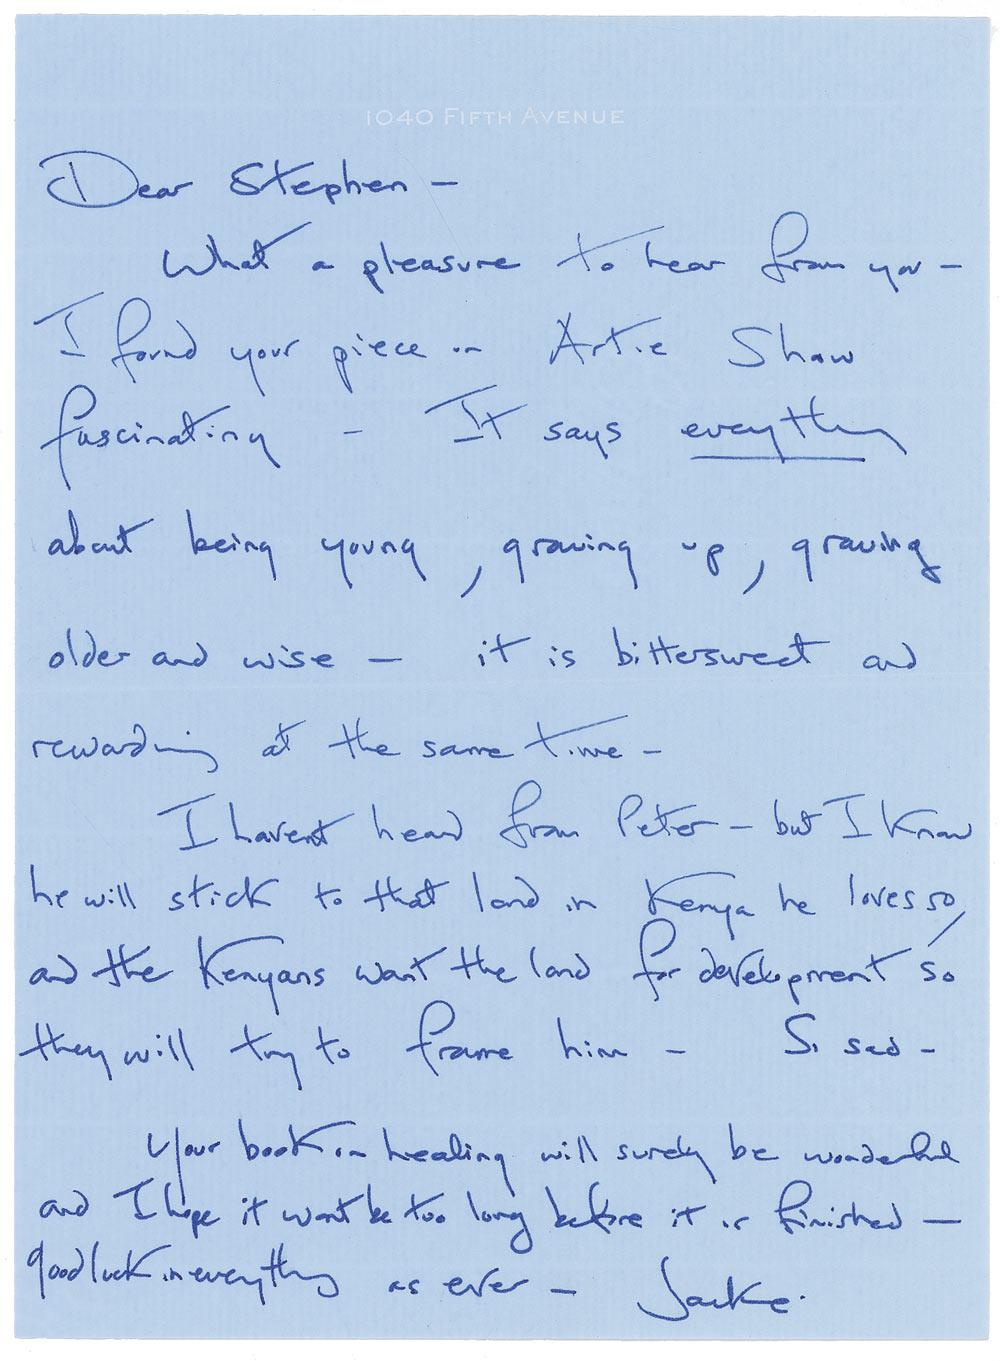 1040 FIFTH AVENUE
Dear Stephen —
What a pleasure to hear from you —
I found your piece on Artie Shaw
fascinating — It says everything
about being young, growing up, growing
older and wise — it is bittersweet and
rewarding at the same time —
I havent heard from Peter — but I know
he will stick to that land in Kenya he loves so,
and the Kenyans want the land for development so
they will try to frame him — So sad —
Your book on healing will surely be wonderful
and I hope it wont be too long before it is finished —
good luck in everything as ever — Jackie.